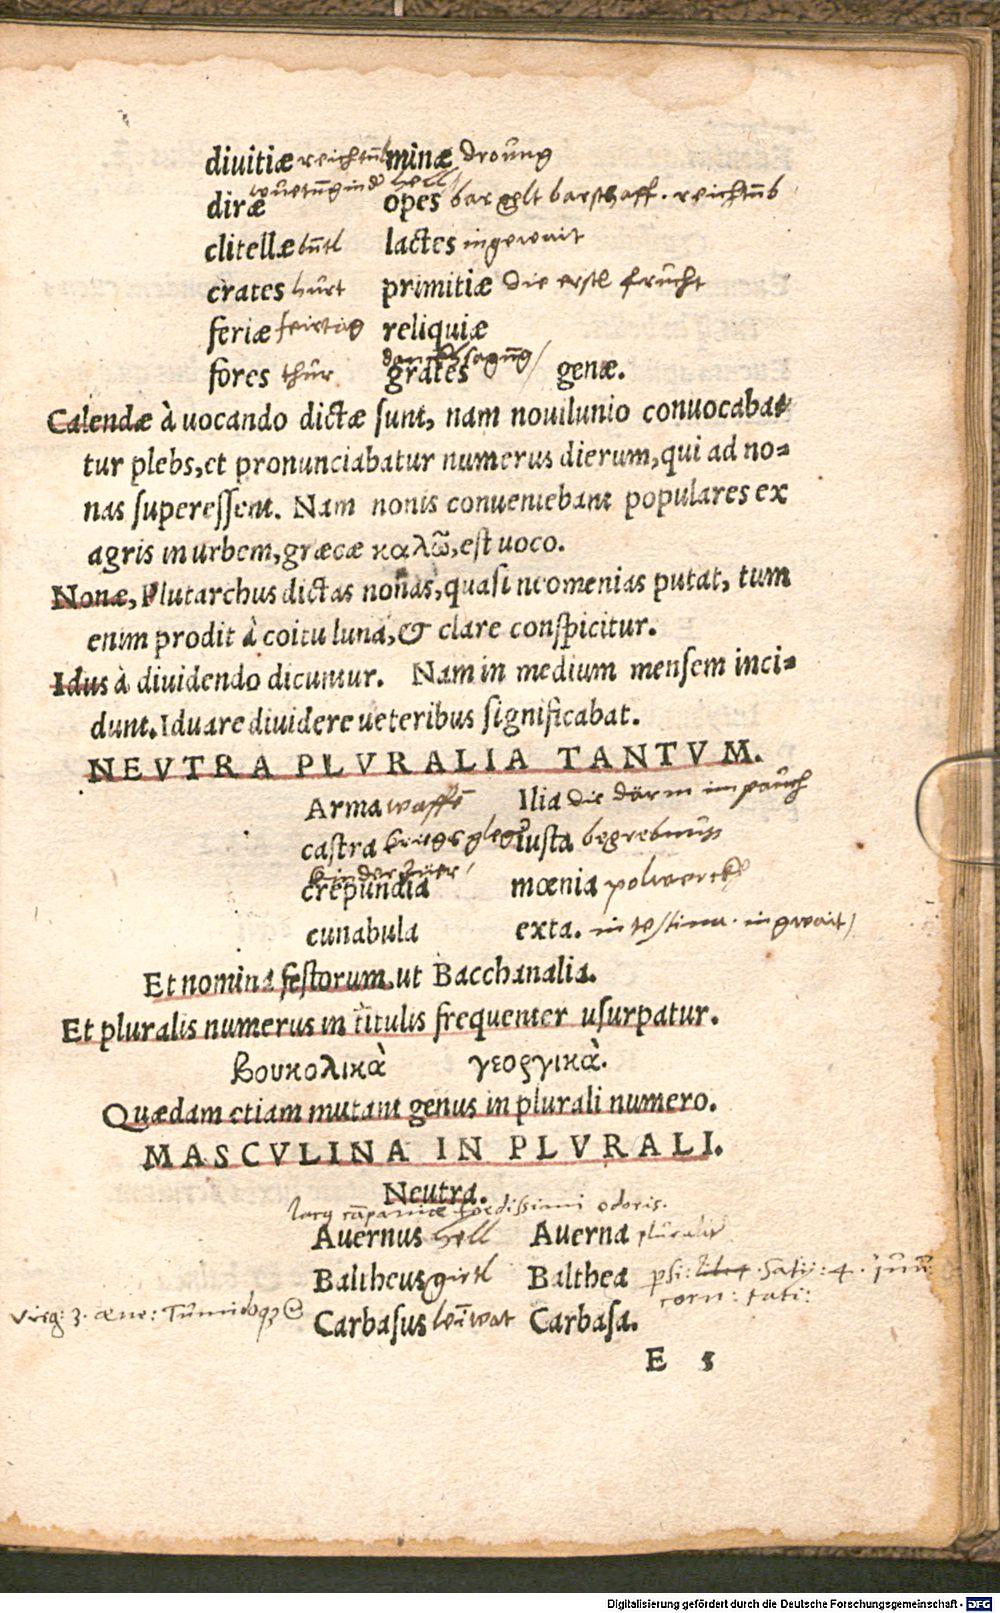 divitiæ reichtūb minæ droung
diræ wuetūg in dʼ hell / opes bar gelt barschaff. reichtūb
clitellæ būtl lactes ingewait
crates hurt primitiæ die erstl frucht
feriæ feirtag reliquiæ
fores thur grates dancksagūg / genæ.
Calendæ à uocando dictæ sunt, nam novilunio convocaba⸗
tur plebs, et pronunciabatur numerus dierum, qui ad no⸗
nas superessent. Nam nonis conveniebant populares ex
agris in urbem, græcæ καλῶ, est uoco.
Nonæ, Plutarchus dictas nonas, quasi neomenias putat, tum
enim prodit à coitu luna, & clare conspicitur.
Idus à dividendo dicuntur. Nam in medium mensem inci⸗
dunt. Iduare dividere ueteribus significabat.
NEVTRA PLVRALIA TANTVM.
Arma waffē Ilia die därm im pauch
castra kriegs gleger iusta begrebnuss
crepundia cunabula
mœnia polwerck
exta. intestina. ingwait /
Et nomina festorum, ut Bacchanalia.
Et pluralis numerus in titulis frequenter usurpatur.
Βουκολικὰ γεοργικὰ.
Quædam etiam mutant genus in plurali numero.
MASCVLINA IN PLVRALI.
Neutra.
cāpaniæ foedissimi odoris.
Avernus hell Averna
Baltheus girtl Balthea
Virg: 3. æne: Carbasus leiwat Carbasa.
E 5
Digitalisierung gefördert durch die Deutsche Forschungsgemeinschaft - DFG